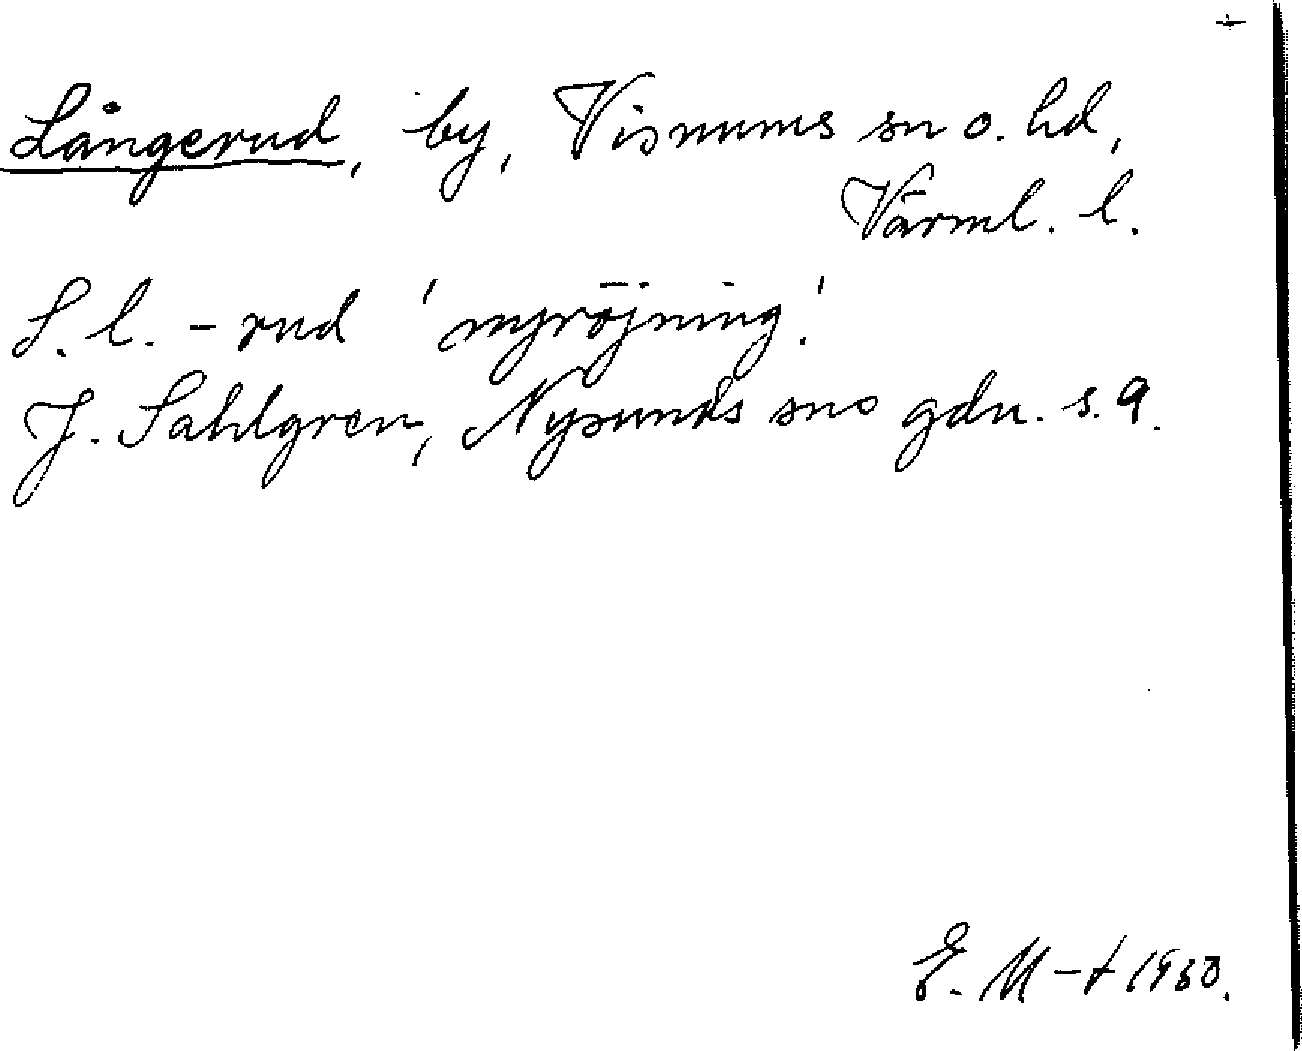 +
Långerud, by, Visnums sn o. hd,
Värml. l.
S. l. -rud 'nyröjning'.
J. Sahlgren, Nysunds sns gdn. s. 9.
E. M-t 1930.